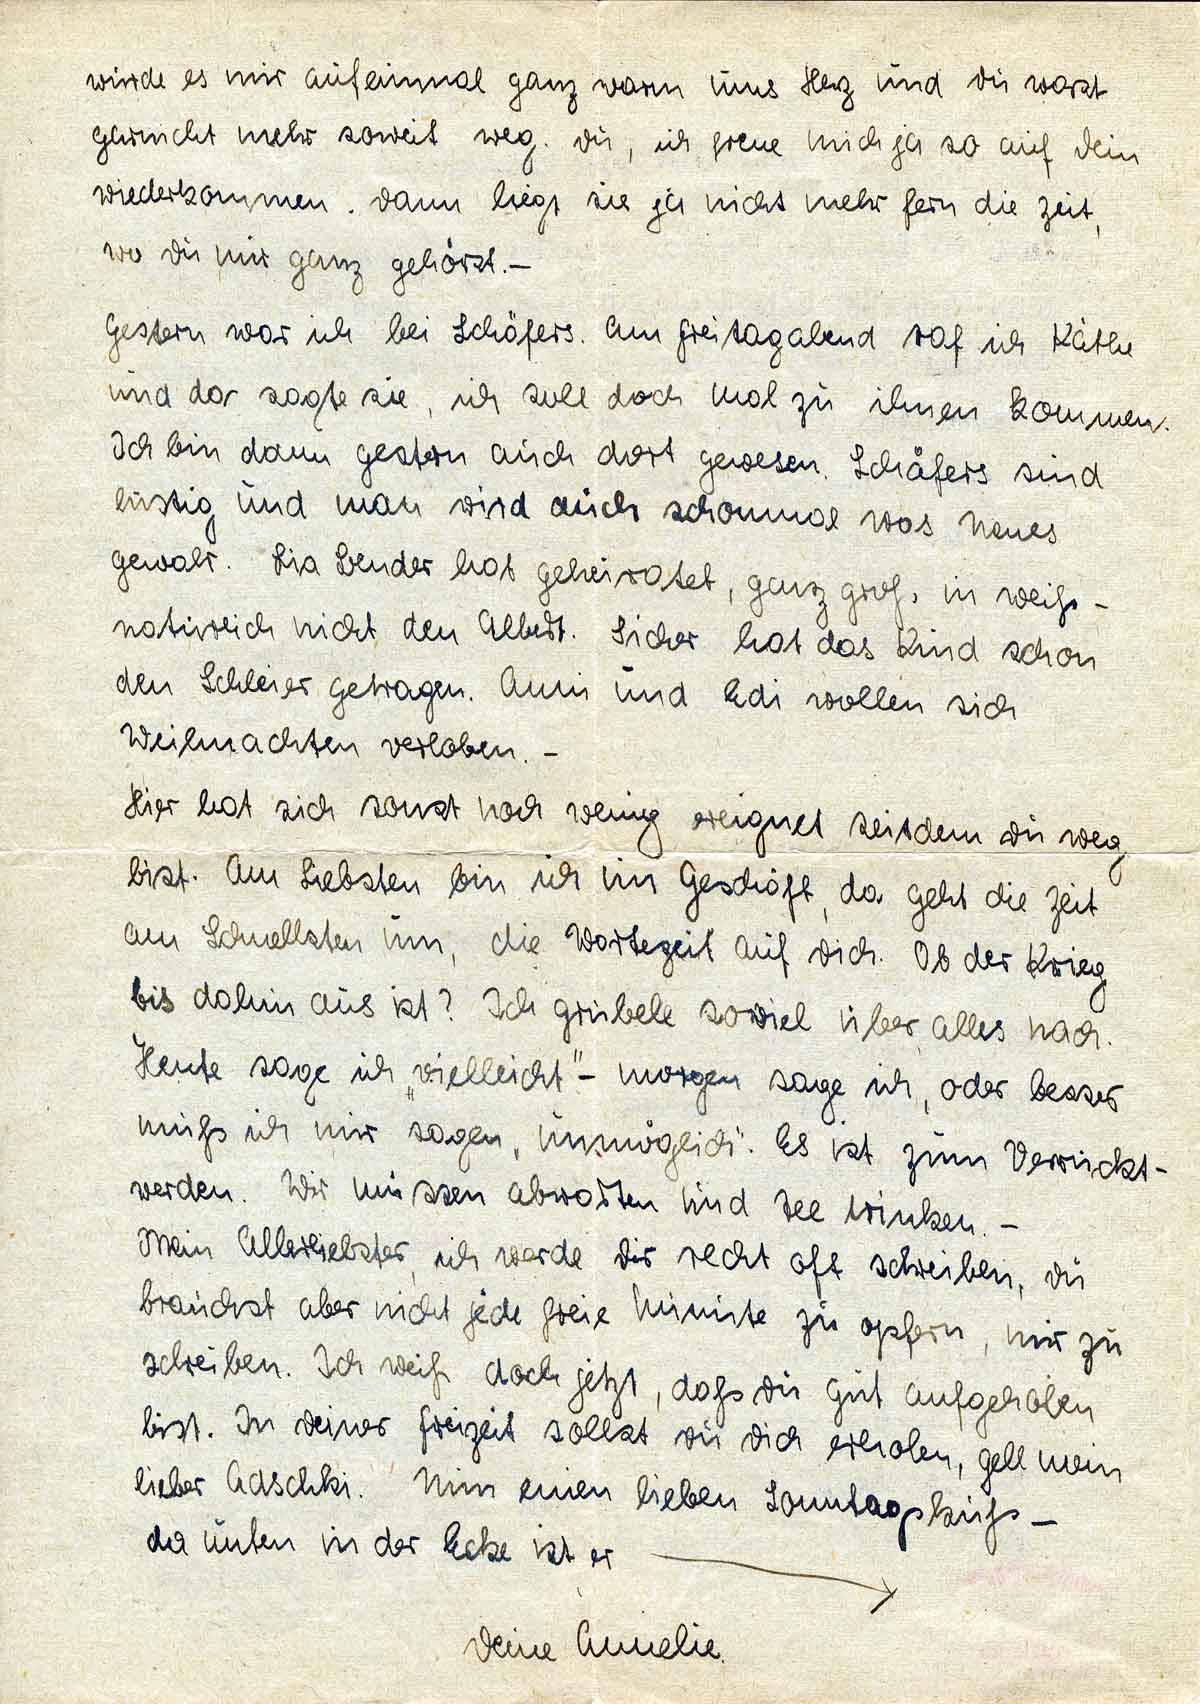 wurde es mir aufeinmal ganz warm ums Herz und Du warst
garnicht mehr soweit weg. Du, ich freue mich ja so auf Dein
Wiederkommen. Dann liegt sie ja nicht mehr fern die Zeit,
wo Du mir ganz gehörst.—
Gestern war ich bei Schäfers. Am Freitagabend traf ich Käthe
und da sagte sie, ich soll doch mal zu ihnen kommen.
Ich bin dann gestern auch dort gewesen. Schäfers sind
lustig und man wird auch schonmal was Neues
gewahr. Lia Bender hat geheiratet, ganz groß, in weiß –
natürlich nicht den Albert. Sicher hat das Kind schon
den Schleier getragen. Anni und Edi wollen sich
Weihnachten verloben. –
Hier hat sich sonst noch wenig ereignet seitdem Du weg
bist. Am Liebsten bin ich im Geschäft, da geht die Zeit
am Schnellsten um, die Wartezeit auf Dich. Ob der Krieg
bis dahin aus ist? Ich grübele soviel über alles nach.
Heute sage ich „vielleicht" – morgen sage ich, oder besser
muß ich mir sagen „unmöglich". Es ist zum Verrückt-
werden. Wir müssen abwarten und Tee trinken. –
Mein Allerliebster, ich werde Dir recht oft schreiben, Du
brauchst aber nicht jede freie Minute zu opfern, mir zu
schreiben. Ich weiß doch jetzt, daß Du gut aufgehoben
bist. In Deiner Freizeit sollst Du Dich erholen, gell mein
lieber Adschki. Nun einen lieben Sonntagskuß –
da unten in der Ecke ist er
Deine Annelie.